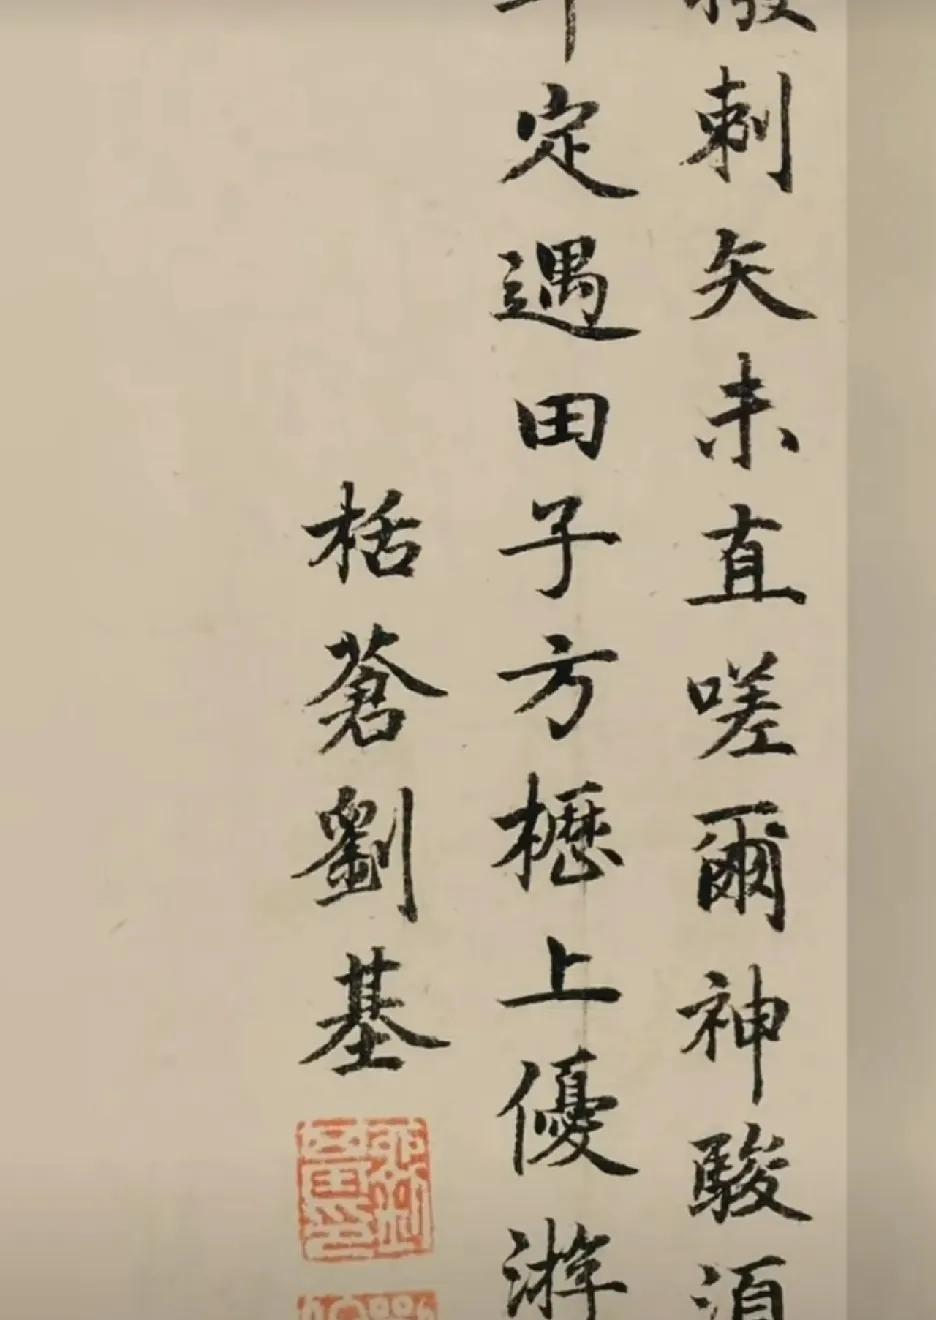 撥剌矢未直嗟爾神駿須
年定遇田子方櫪上優游
栝蒼劉基